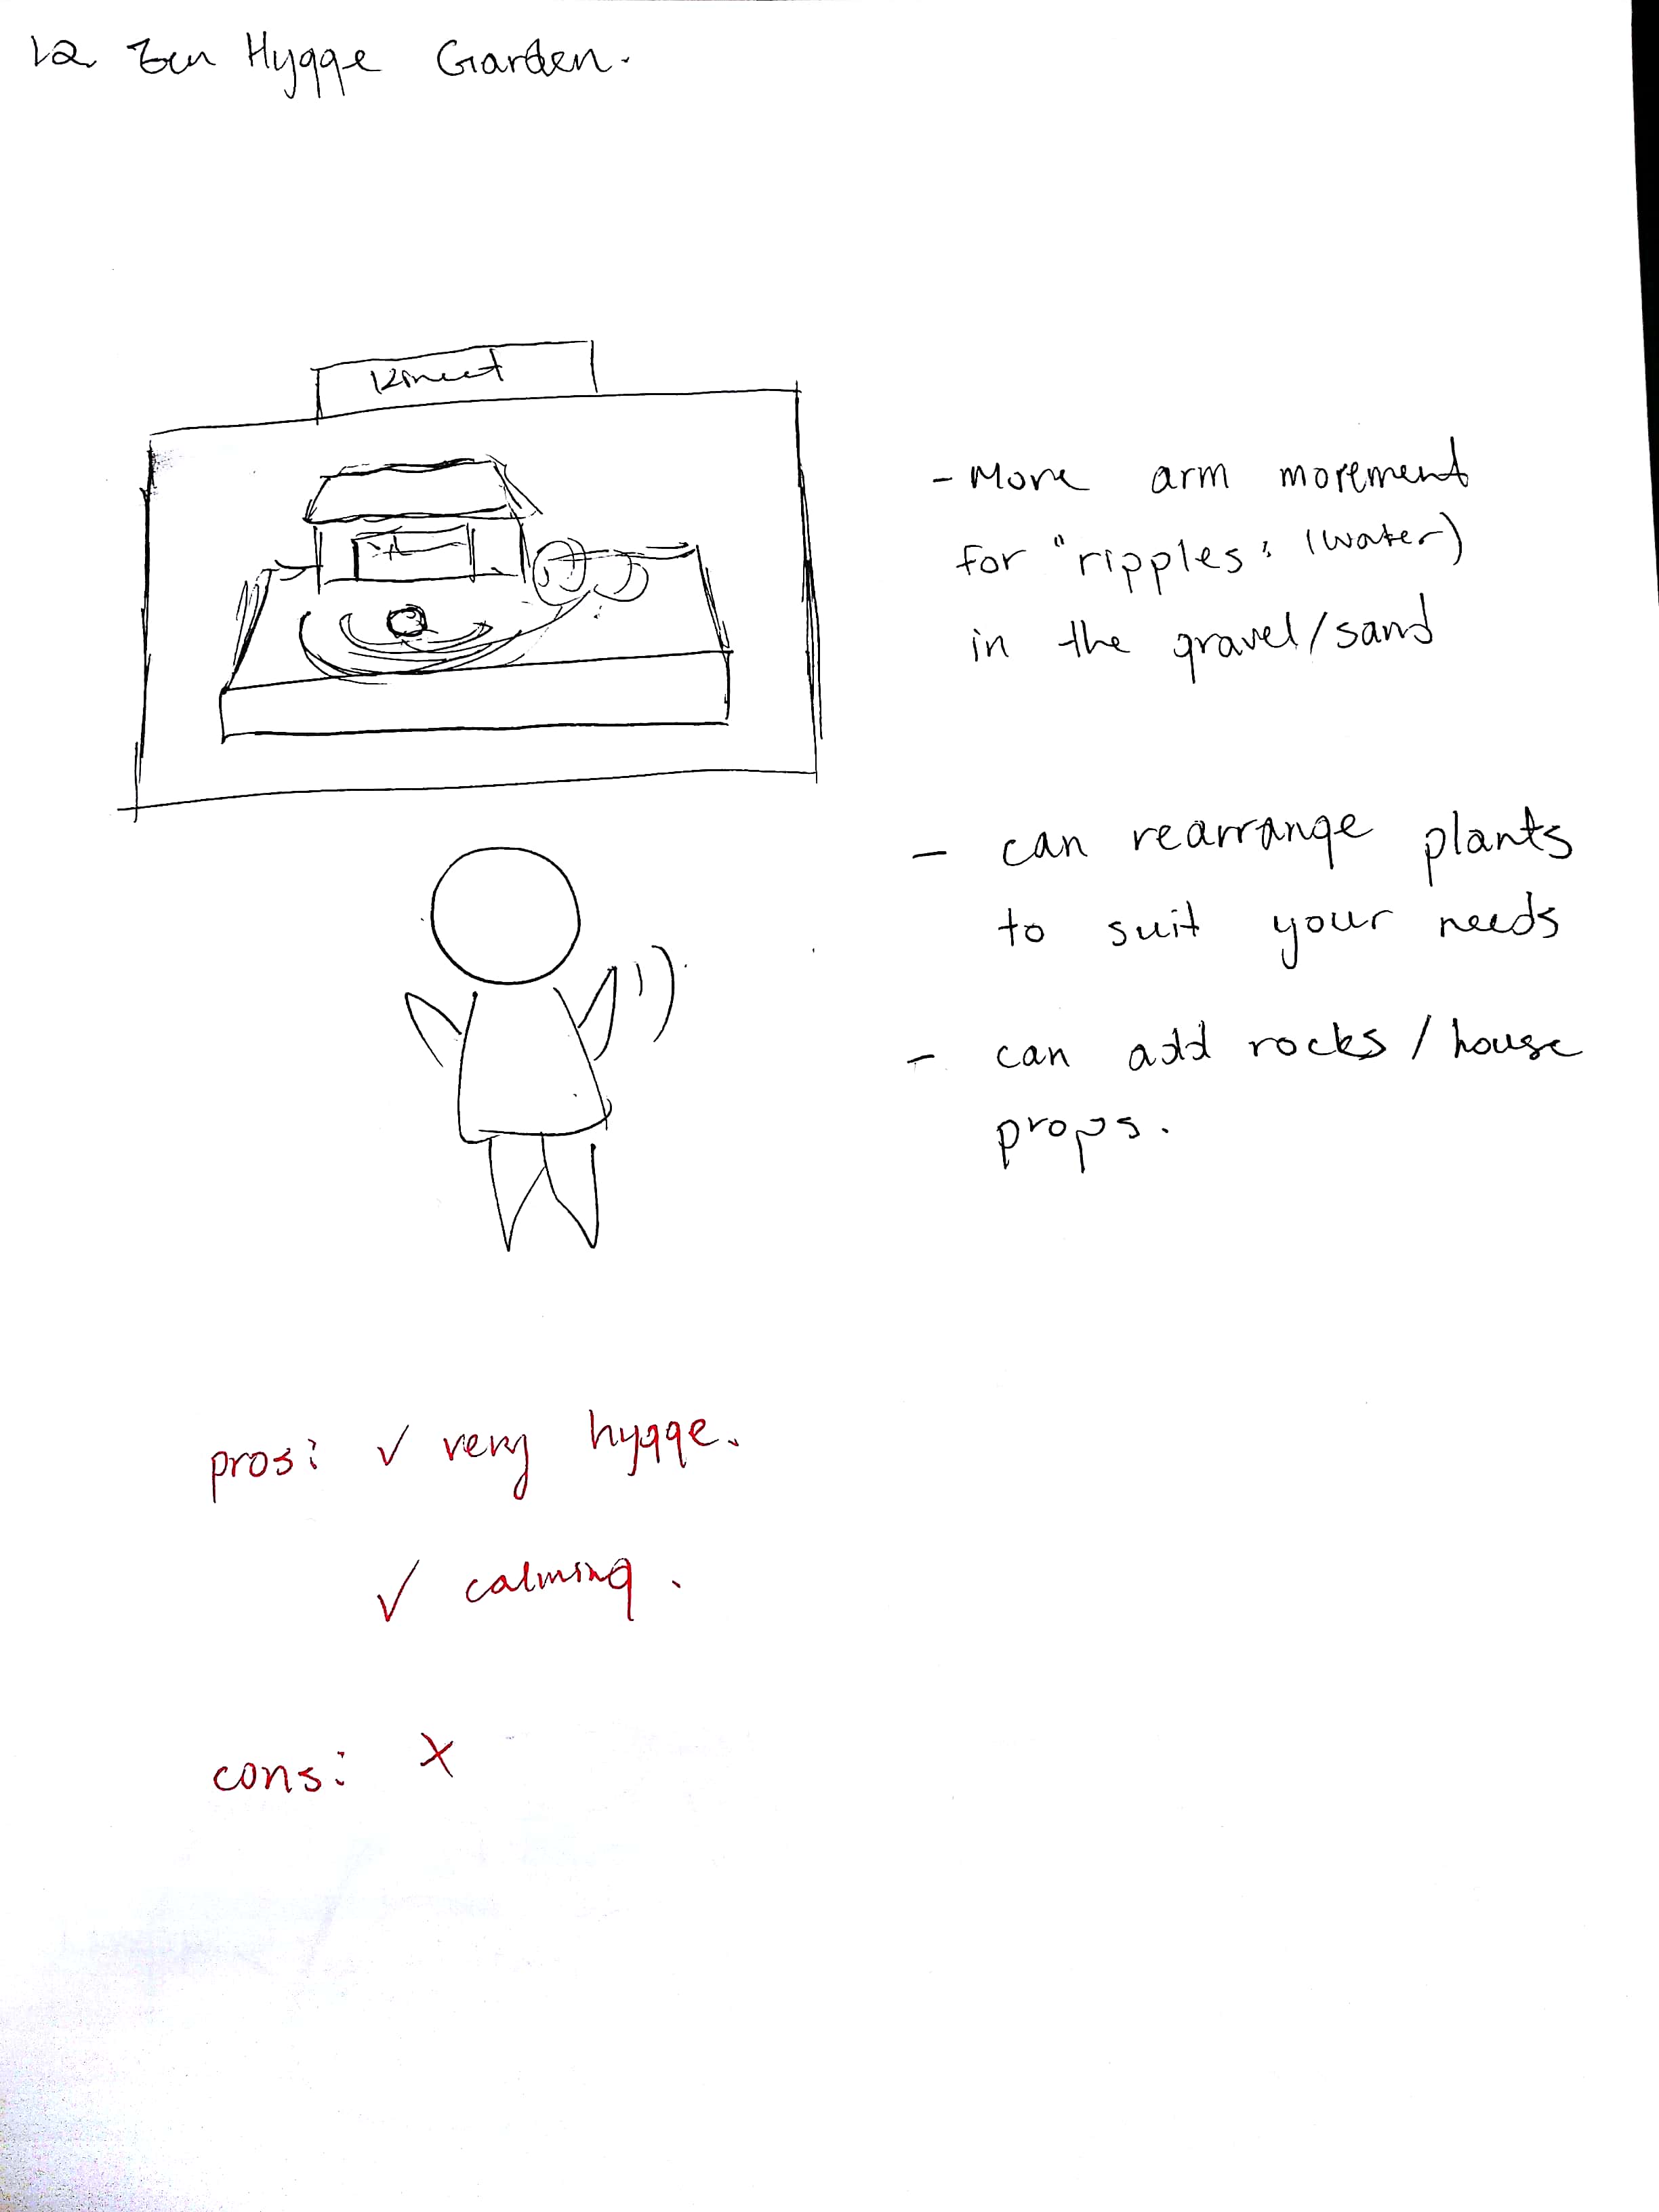 12. Zen Hygge Garden.
Kinect
- More arm movement
for "ripples" (water)
in the gravel/sand
- can rearrange plants
to suit your needs
- can add rocks / house
props.
pros: ✓ very hygge.
✓ calming.
cons: x